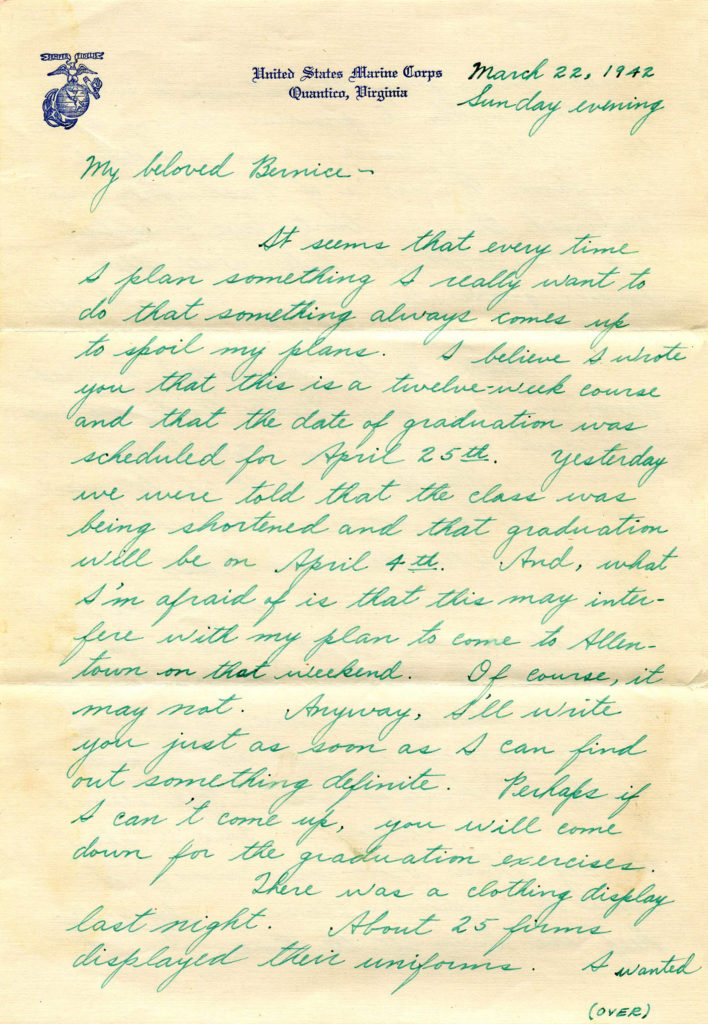 SEMPER FIDELIS
United States Marine Corps
Quantico, Virginia
March 22, 1942
Sunday evening
My beloved Bernice —
It seems that every time
I plan something I really want to
do that something always comes up
to spoil my plans. I believe I wrote
you that this is a twelve-week course
and that the date of graduation was
scheduled for April 25th. Yesterday
we were told that the class was
being shortened and that graduation
will be on April 4th. And, what
I'm afraid of is that this may inter-
fere with my plan to come to Allen-
town on that weekend. Of course, it
may not. Anyway, I'll write
you just as soon as I can find
out something definite. Perhaps if
I can't come up, you will come
down for the graduation exercises.
There was a clothing display
last night. About 25 firms
displayed their uniforms. I wanted
(OVER)